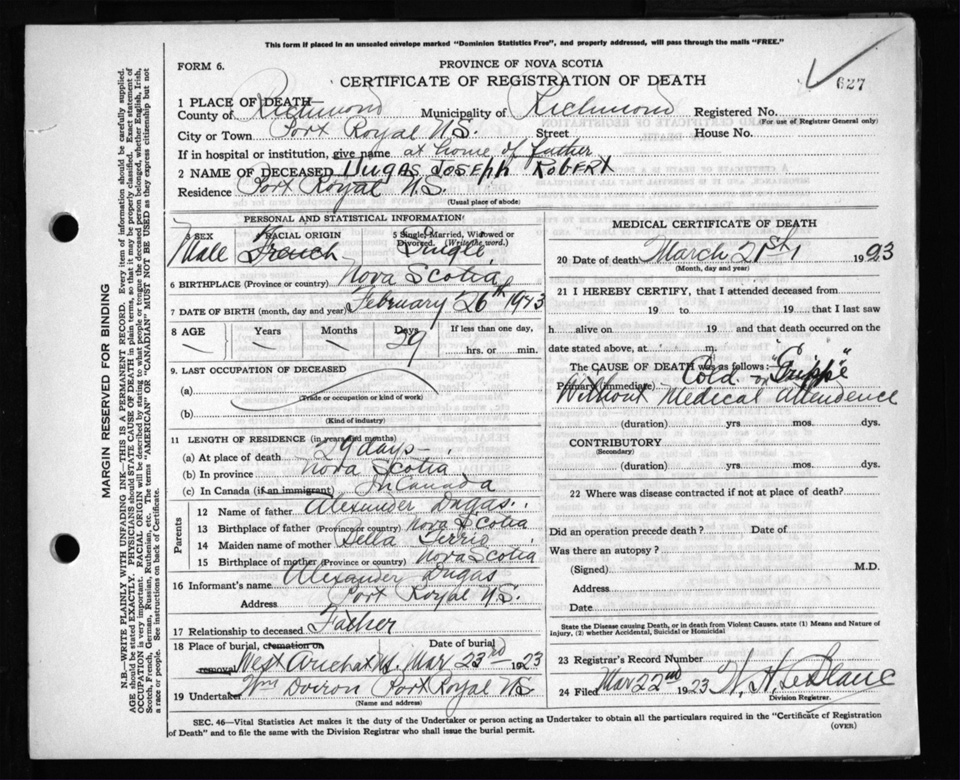 This form if placed in an unsealed envelope marked "Dominion Statistics Free", and properly addressed, will pass through the mails "FREE."
FORM 6.
PROVINCE OF NOVA SCOTIA
CERTIFICATE OF REGISTRATION OF DEATH
627
1 PLACE OF DEATH
County of Richmond Municipality of Richmond Registered No.
(For use of Registrar General only)
City or Town Port Royal N.S. Street House No.
If in hospital or institution, give name at home of father
2 NAME OF DECEASED Dugas Joseph Robert
Residence Port Royal N.S.
(Usual place of abode)
PERSONAL AND STATISTICAL INFORMATION
SEX RACIAL ORIGIN 5 Single, Married, Widowed or Divorced. (Write the word.)
Male French Single
6 BIRTHPLACE (Province or country) Nova Scotia
7 DATE OF BIRTH (month, day and year) February 26th 1943
8 AGE Years Months Days If less than one day,
29 hrs. or min.
9. LAST OCCUPATION OF DECEASED
(a)
(Trade or occupation or kind of work)
(b)
(Kind of industry)
11 LENGTH OF RESIDENCE (in years and months)
(a) At place of death 29 days
(b) In province Nova Scotia
(c) In Canada (if an immigrant) In Canada
Parents
12 Name of father Alexander Dugas
13 Birthplace of father (Province or country) Nova Scotia
14 Maiden name of mother Bella Terrio
15 Birthplace of mother (Province or country) Nova Scotia
16 Informant's name Alexander Dugas
Address Port Royal N.S.
17 Relationship to deceased Father
18 Place of burial, cremation or removal Date of burial
West Arichat N.S. Mar 23rd 1923
19 Undertaker Wm Doiron Port Royal NS
(Name and address)
MEDICAL CERTIFICATE OF DEATH
20 Date of death March 21st, 193
(Month, day and year)
21 I HEREBY CERTIFY, that I attended deceased from
19 to 19 that I last saw
h alive on 19 and that death occurred on the
date stated above, at m.
The CAUSE OF DEATH was as follows:
Primary (immediate) Cold or "Grippe"
Without Medical Attendence
(duration) yrs. mos. dys.
CONTRIBUTORY
(Secondary)
(duration) yrs. mos. dys.
22 Where was disease contracted if not at place of death?
Did an operation precede death? Date of
Was there an autopsy?
(Signed) M.D.
Address
Date
State the Disease causing Death, or in death from Violent Causes, state (1) Means and Nature of Injury, (2) whether Accidental, Suicidal or Homicidal
23 Registrar's Record Number
24 Filed Mar 22nd 1923 W. H. LeBlanc
Division Registrar.
SEC. 46—Vital Statistics Act makes it the duty of the Undertaker or person acting as Undertaker to obtain all the particulars required in the "Certificate of Registration
of Death" and to file the same with the Division Registrar who shall issue the burial permit.
(OVER)
MARGIN RESERVED FOR BINDING
N.B.—WRITE PLAINLY WITH UNFADING INK—THIS IS A PERMANENT RECORD. Every item of information should be carefully supplied.
AGE should be stated EXACTLY. PHYSICIANS should STATE CAUSE OF DEATH in plain terms, so that it may be properly classified. Exact statement of
OCCUPATION is very important. RACIAL ORIGIN will be described by stating to what people or tongue the deceased person belonged, whether English, Irish,
Scotch, French, German, Russian, Ruthenian, etc. The terms "AMERICAN" OR "CANADIAN" MUST NOT BE USED as they express citizenship but not
a race or people. See instructions on back of Certificate.